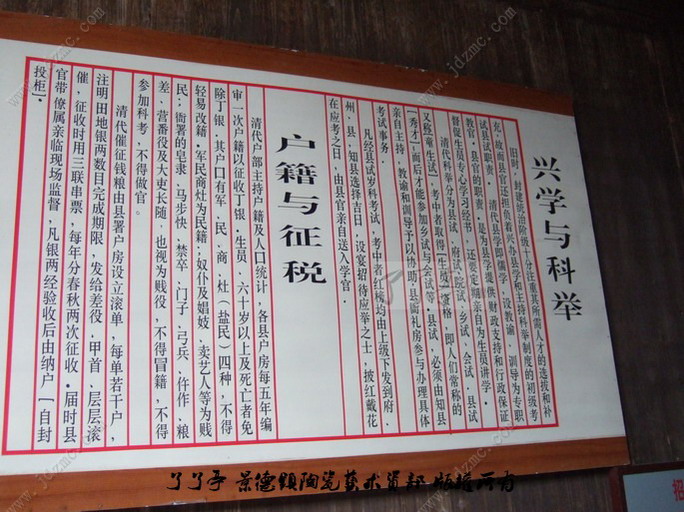 兴学与科举
旧时，封建统治阶级十分注重其所需人才的选拔和补
充，故而县官还担负着兴办县学和主持科举制度的初级考
试县试职责。清代县学即儒学，设教谕、训导为专职
教官。县官的职责：是为县学提供财政支持和行政保证
督促生员专心学习经书，还要定期亲自为生员讲学。
清代科举分为县试、府试、院试、乡试、会试，县试
又称童生试，考中者取得［生员］资格，即人们常称的
［秀才］，而后才能参加乡试与会试等，县试，必须由知县
亲自主持，教谕和训导予以协助，县衙礼房参与办理具体
考试事务。
凡经县试岁科考试，考中者红榜均由上级下发到府、
州、县，知县选择吉日，设宴招待应举之士，披红戴花
在应考之日，由县官亲自送入学官。
户籍与征税
清代户部主持户籍及人口统计，各县户房每五年编
审一次户籍以征收丁银，生员、六十岁以上及死亡者免
除丁银，其户口有军、民、商、灶（盐民）四种，不得
轻易改籍。军民商灶为民籍；奴仆及娼妓、卖艺人等为贱
民；衙署的皂隶、马步快、禁卒、门子、弓兵、仵作、粮
差、营番役及大吏长随，也视为贱役，不得冒籍，不得
参加科考，不得做官。
清代催征钱粮由县署户房设立滚单，每单若干户，
注明田地银两数目完成期限，发给差役、甲首，层层滚
催，征收时用三联串票，每年分春秋两次征收。届时县
官带僚属亲临现场监督，凡银两经验收后由纳户［自封
投柜］。
招
了了亭 景德镇陶瓷艺术资料 版权所有
www.jdzmc.com